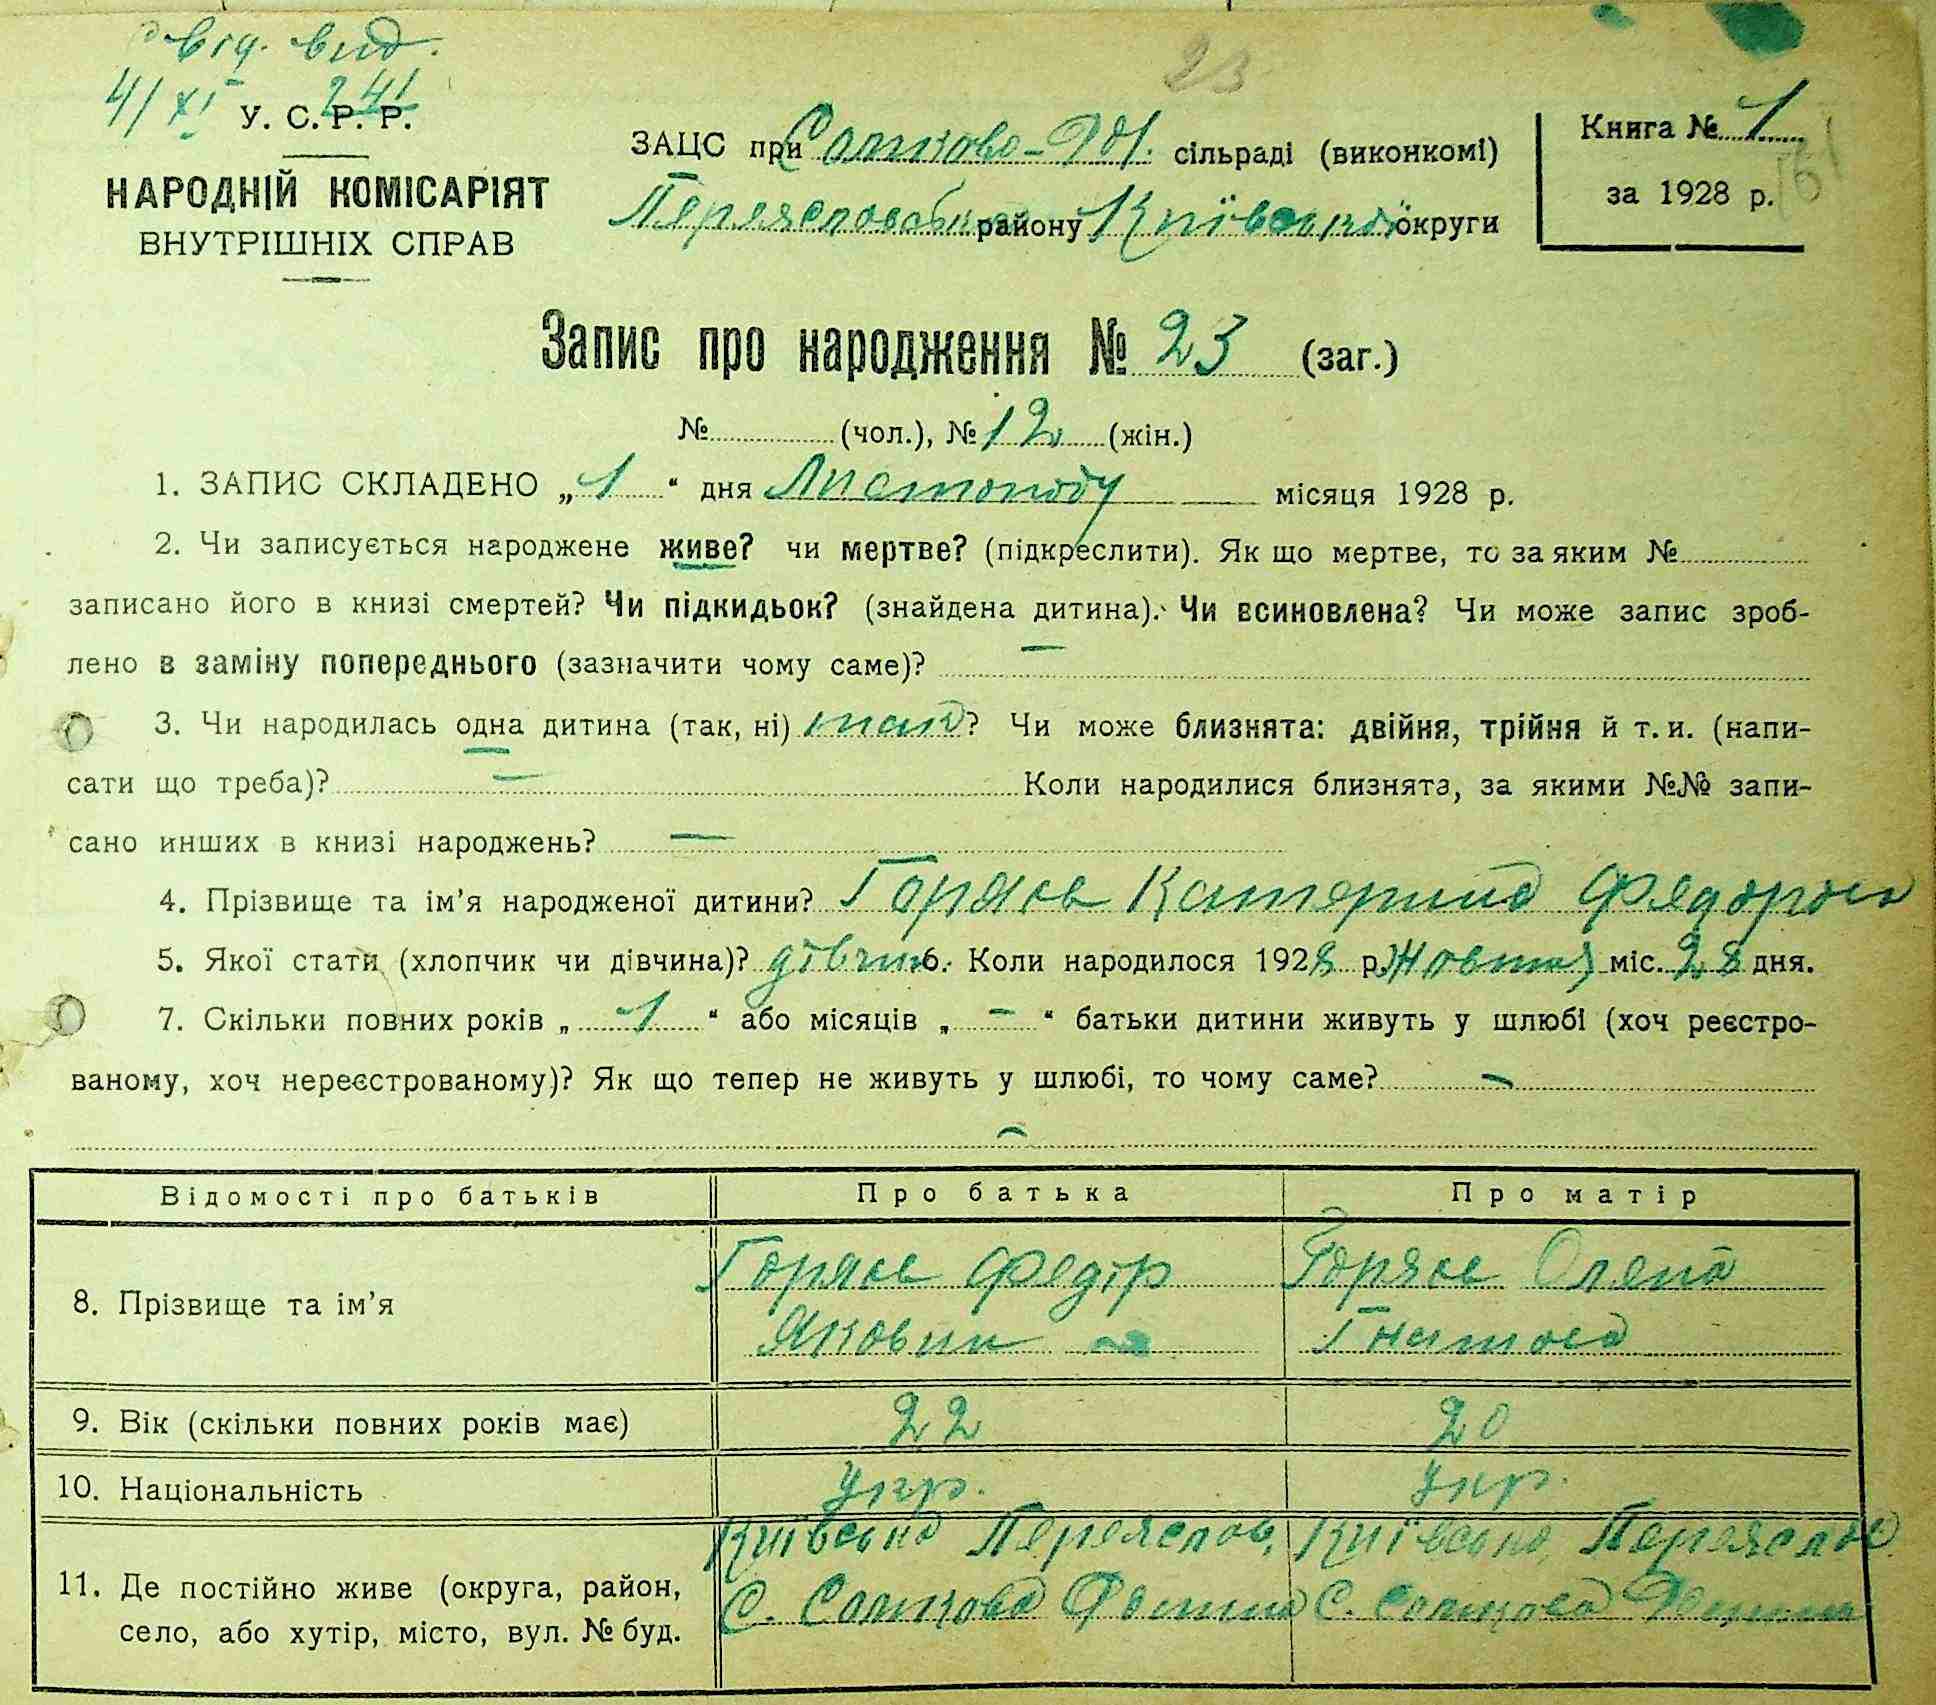 свід. вид.
4/XI 241
23
У. С. Р. Р.
НАРОДНІЙ КОМІСАРІЯТ
ВНУТРІШНІХ СПРАВ
ЗАЦС при сільраді (виконкомі)
Переяславськ району Київської округи
Книга № 1
за 1928 р.
Запис про народження № 23 (заг.)
№ (чол.), № 12 (жін.)
1. ЗАПИС СКЛАДЕНО „1“ дня Листопаду місяця 1928 р.
2. Чи записується народжене живе? чи мертве? (підкреслити). Як що мертве, то за яким №
записано його в книзі смертей? Чи підкидьок? (знайдена дитина). Чи всиновлена? Чи може запис зроб-
лено в заміну попереднього (зазначити чому саме)? —
3. Чи народилась одна дитина (так, ні) так? Чи може близнята: двійня, трійня й т. и. (напи-
сати що треба)? — Коли народилися близнята, за якими №№ запи-
сано инших в книзі народжень? —
4. Прізвище та ім’я народженої дитини? Горяєв Катерина Федоров
5. Якої стати (хлопчик чи дівчина)? дівчин 6. Коли народилося 1928 р. Жовтня міс. 28 дня.
7. Скільки повних років „1“ або місяців „-“ батьки дитини живуть у шлюбі (хоч реєстро-
ваному, хоч нереєстрованому)? Як що тепер не живуть у шлюбі, то чому саме? -
-
Відомості про батьків Про батька Про матір
8. Прізвище та ім’я
Горяєв Федір Горяєв Олена
Якович Гнатова
9. Вік (скільки повних років має) 22 20
10. Національність Укр. Укр.
11. Де постійно живе (округа, район,
село, або хутір, місто, вул. № буд.
Київська Переяслов. Київська, Переяслов
С. С.